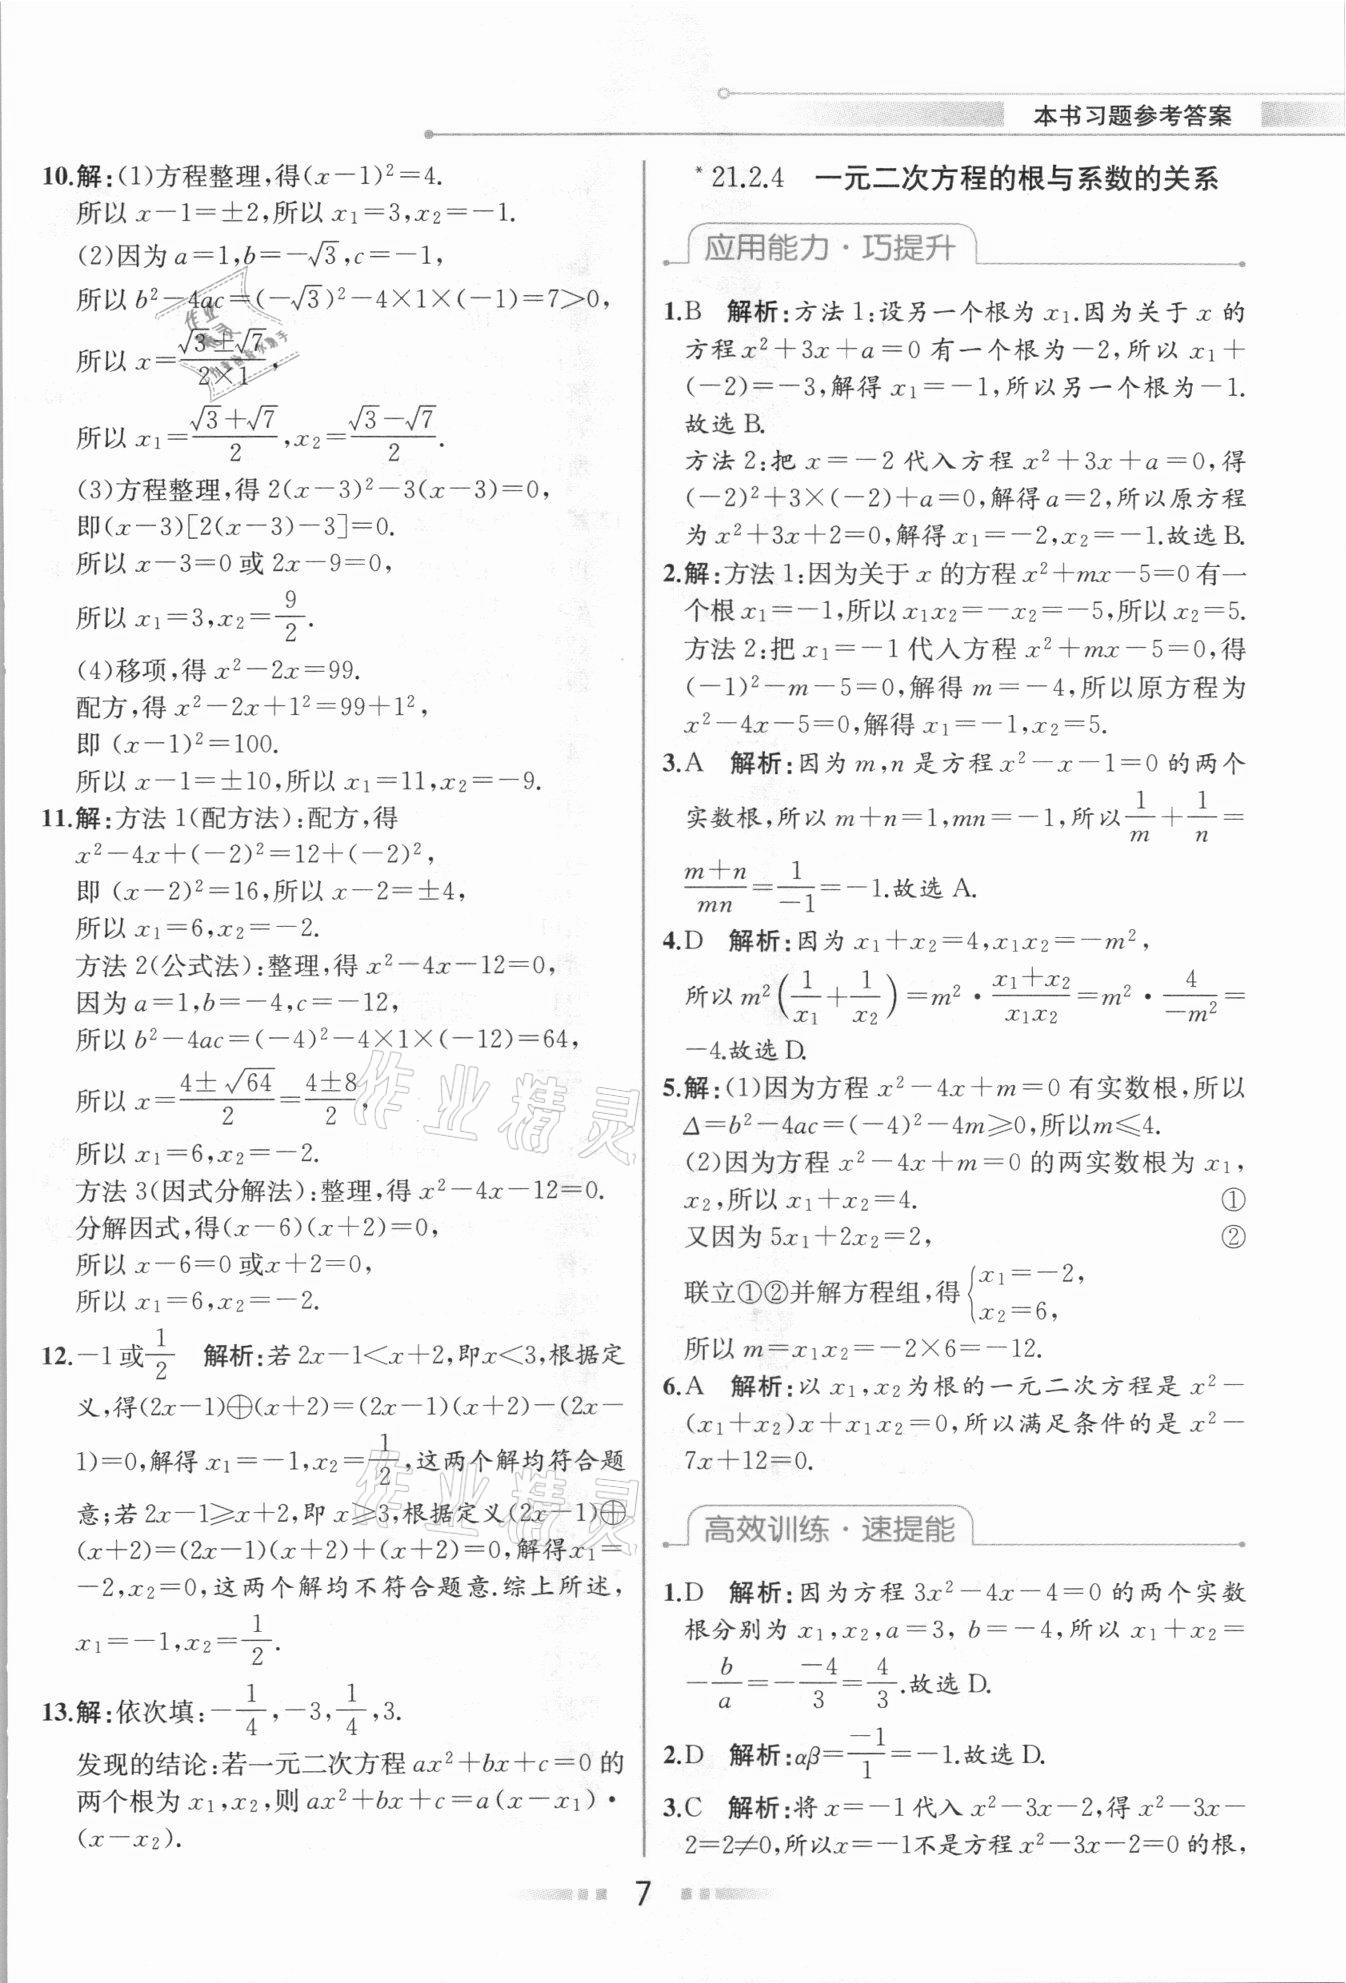 本书习题参考答案
10.解:(1)方程整理,得(x-1)²=4.
所以 x-1=±2,所以 x₁=3,x₂=-1.
(2)因为 a=1,b=-√3,c=-1,
所以 b²-4ac=(-√3)²-4×1×(-1)=7>0,
所以 x=(√3±√7)/(2×1),
所以 x₁=(√3+√7)/2,x₂=(√3-√7)/2.
(3)方程整理,得 2(x-3)²-3(x-3)=0,
即(x-3)[2(x-3)-3]=0.
所以 x-3=0 或 2x-9=0,
所以 x₁=3,x₂=9/2.
(4)移项,得 x²-2x=99.
配方,得 x²-2x+1²=99+1²,
即 (x-1)²=100.
所以 x-1=±10,所以 x₁=11,x₂=-9.
11.解:方法 1(配方法):配方,得
x²-4x+(-2)²=12+(-2)²,
即 (x-2)²=16,所以 x-2=±4,
所以 x₁=6,x₂=-2.
方法 2(公式法):整理,得 x²-4x-12=0,
因为 a=1,b=-4,c=-12,
所以 b²-4ac=(-4)²-4×1×(-12)=64,
所以 x=(4±√64)/2=(4±8)/2,
所以 x₁=6,x₂=-2.
方法 3(因式分解法):整理,得 x²-4x-12=0.
分解因式,得(x-6)(x+2)=0,
所以 x-6=0 或x+2=0,
所以 x₁=6,x₂=-2.
12.-1或1/2 解析:若 2x-1<x+2,即x<3,根据定
义,得(2x-1)⊕(x+2)=(2x-1)(x+2)-(2x-
1)=0,解得 x₁=-1,x₂=1/2,这两个解均符合题
意;若 2x-1≥x+2,即 x≥3,根据定义(2x-1)⊕
(x+2)=(2x-1)(x+2)+(x+2)=0,解得x₁=
-2,x₂=0,这两个解均不符合题意.综上所述,
x₁=-1,x₂=1/2.
13.解:依次填:-1/4,-3,1/4,3.
发现的结论:若一元二次方程 ax²+bx+c=0 的
两个根为 x₁,x₂,则 ax²+bx+c=a(x-x₁)·
(x-x₂).
*21.2.4 一元二次方程的根与系数的关系
应用能力·巧提升
1.B 解析:方法 1:设另一个根为 x₁.因为关于 x 的
方程x²+3x+a=0 有一个根为-2,所以 x₁+
(-2)=-3,解得 x₁=-1,所以另一个根为-1.
故选 B.
方法 2:把 x=-2 代入方程 x²+3x+a=0,得
(-2)²+3×(-2)+a=0,解得a=2,所以原方程
为 x²+3x+2=0,解得x₁=-2,x₂=-1.故选B.
2.解:方法 1:因为关于 x 的方程 x²+mx-5=0 有一
个根x₁=-1,所以 x₁x₂=-x₂=-5,所以 x₂=5.
方法 2:把 x₁=-1 代入方程 x²+mx-5=0,得
(-1)²-m-5=0,解得 m=-4,所以原方程为
x²-4x-5=0,解得 x₁=-1,x₂=5.
3.A 解析:因为 m,n 是方程 x²-x-1=0 的两个
实数根,所以 m+n=1,mn=-1,所以1/m+1/n=
(m+n)/mn=1/-1=-1.故选 A.
4.D 解析:因为 x₁+x₂=4,x₁x₂=-m²,
所以 m²(1/x₁+1/x₂)=m²·(x₁+x₂)/x₁x₂=m²·4/-m²=
-4.故选 D.
5.解:(1)因为方程 x²-4x+m=0 有实数根,所以
Δ=b²-4ac=(-4)²-4m≥0,所以m≤4.
(2)因为方程 x²-4x+m=0 的两实数根为 x₁,
x₂,所以 x₁+x₂=4. ①
又因为 5x₁+2x₂=2, ②
联立①②并解方程组,得{x₁=-2,
x₂=6,
所以 m=x₁x₂=-2×6=-12.
6.A 解析:以 x₁,x₂为根的一元二次方程是 x²-
(x₁+x₂)x+x₁x₂=0,所以满足条件的是 x²-
7x+12=0.
高效训练·速提能
1.D 解析:因为方程 3x²-4x-4=0 的两个实数
根分别为 x₁,x₂,a=3, b=-4,所以 x₁+x₂=
-b/a=--4/3=4/3.故选 D.
2.D 解析:αβ=-1/1=-1.故选 D.
3.C 解析:将 x=-1 代入 x²-3x-2,得 x²-3x-
2=2≠0,所以x=-1不是方程 x²-3x-2=0 的根,
7
作业精灵
作业精灵